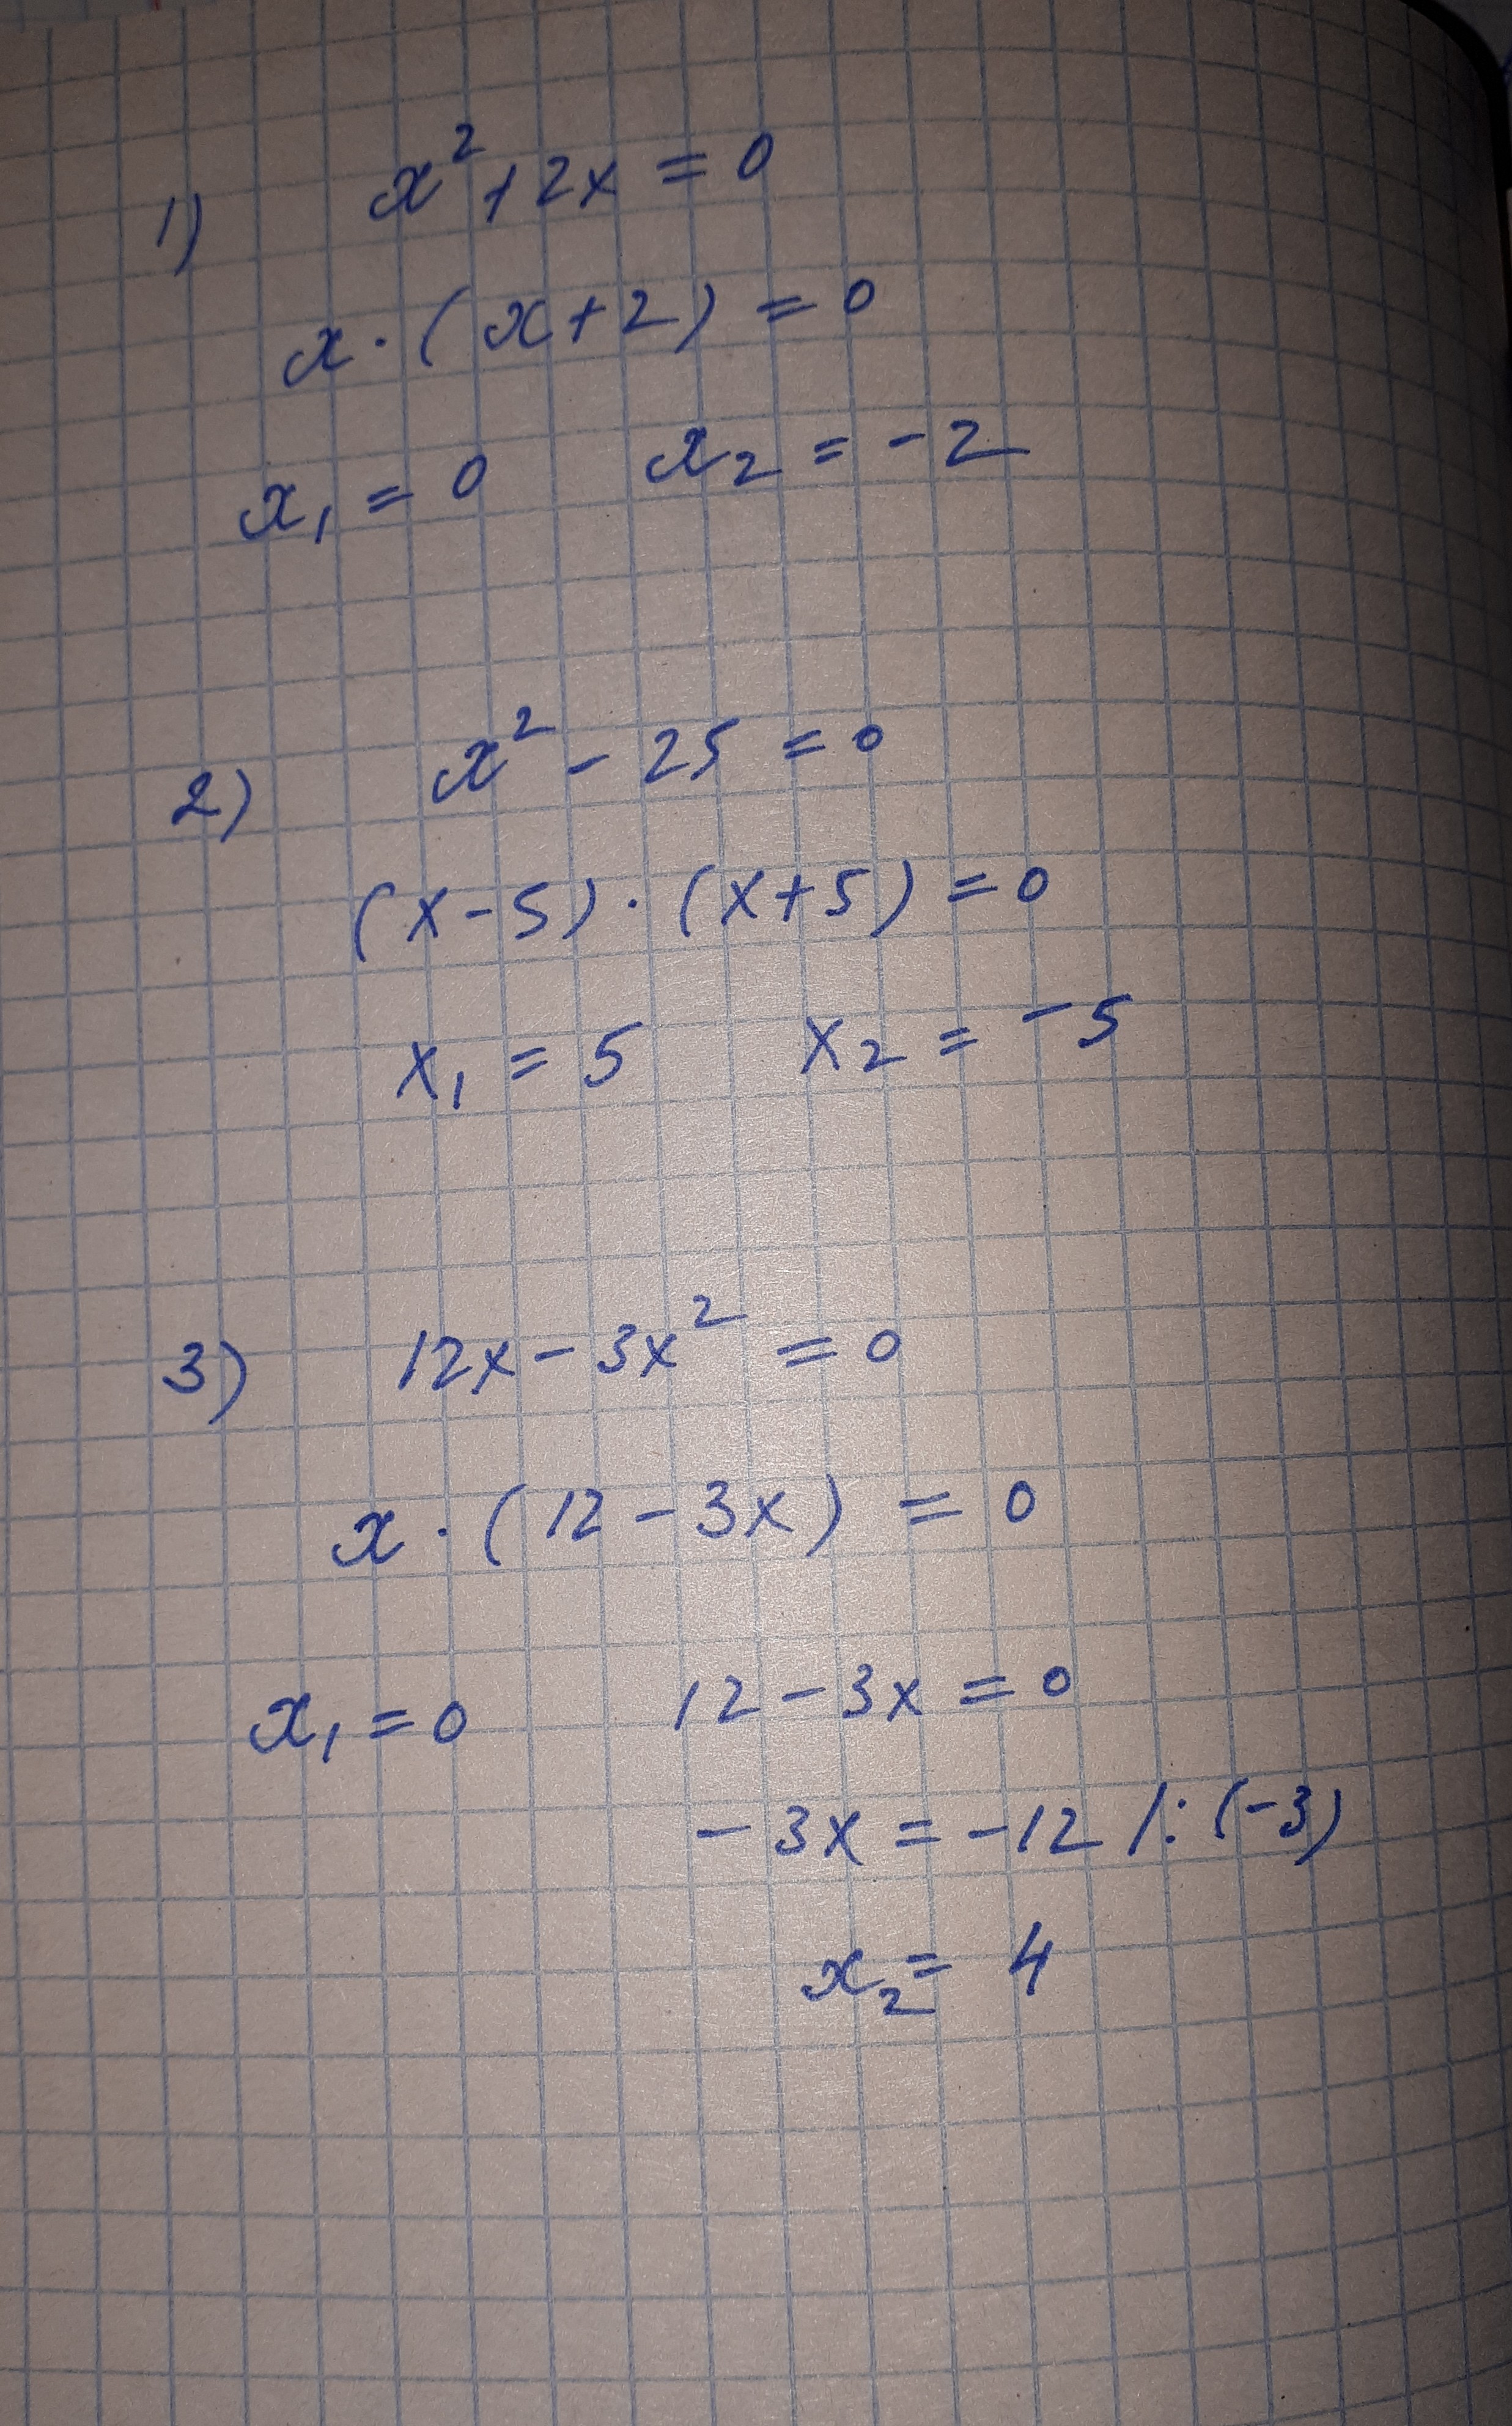 1) x² + 2x = 0
x · (x + 2) = 0
x₁ = 0 x₂ = -2
2) x² - 25 = 0
(x - 5) · (x + 5) = 0
x₁ = 5 x₂ = -5
3) 12x - 3x² = 0
x · (12 - 3x) = 0
x₁ = 0 12 - 3x = 0
-3x = -12 /: (-3)
x₂ = 4